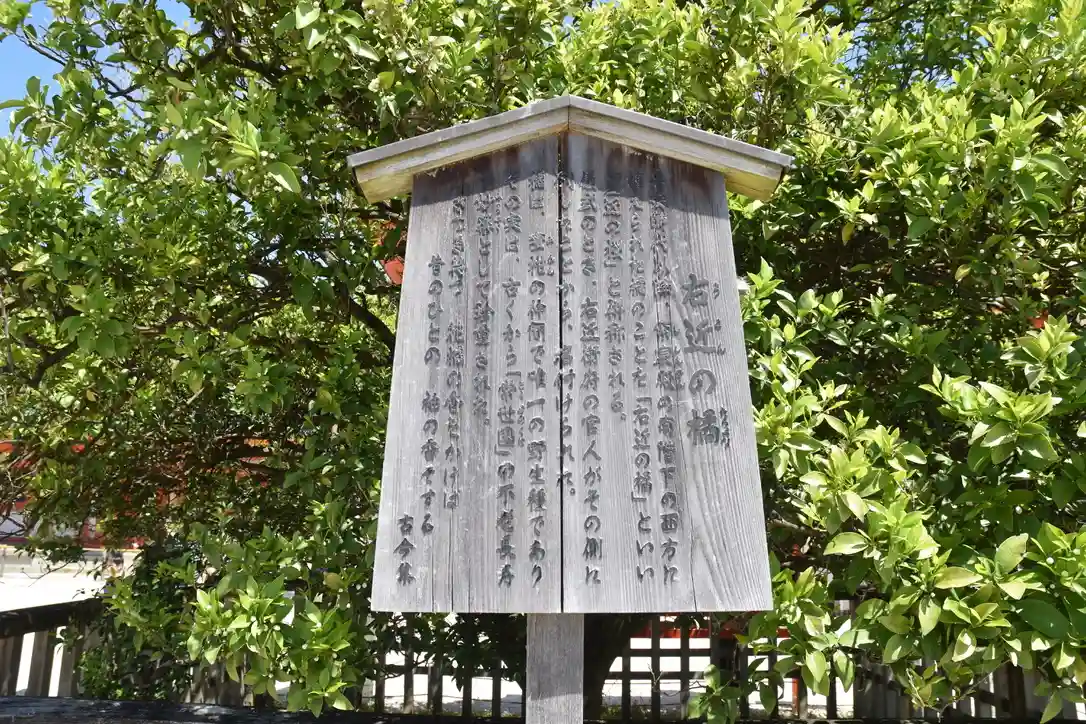 右近の橘
うこん
たちばな
の南階下の西方に
植えられた橘のことを「右近の橘」といい
左近の桜」と併称される。
儀式のとき、右近衛府の官人がその側に
したことから、名付けられた。
橘は、柑橘の仲間で唯一の野生種であり
その実は、古くから「常世国」の不老長寿
の妙薬として珍重された。
花橘の香をかげば
昔のひとの 袖の香ぞする
古今集